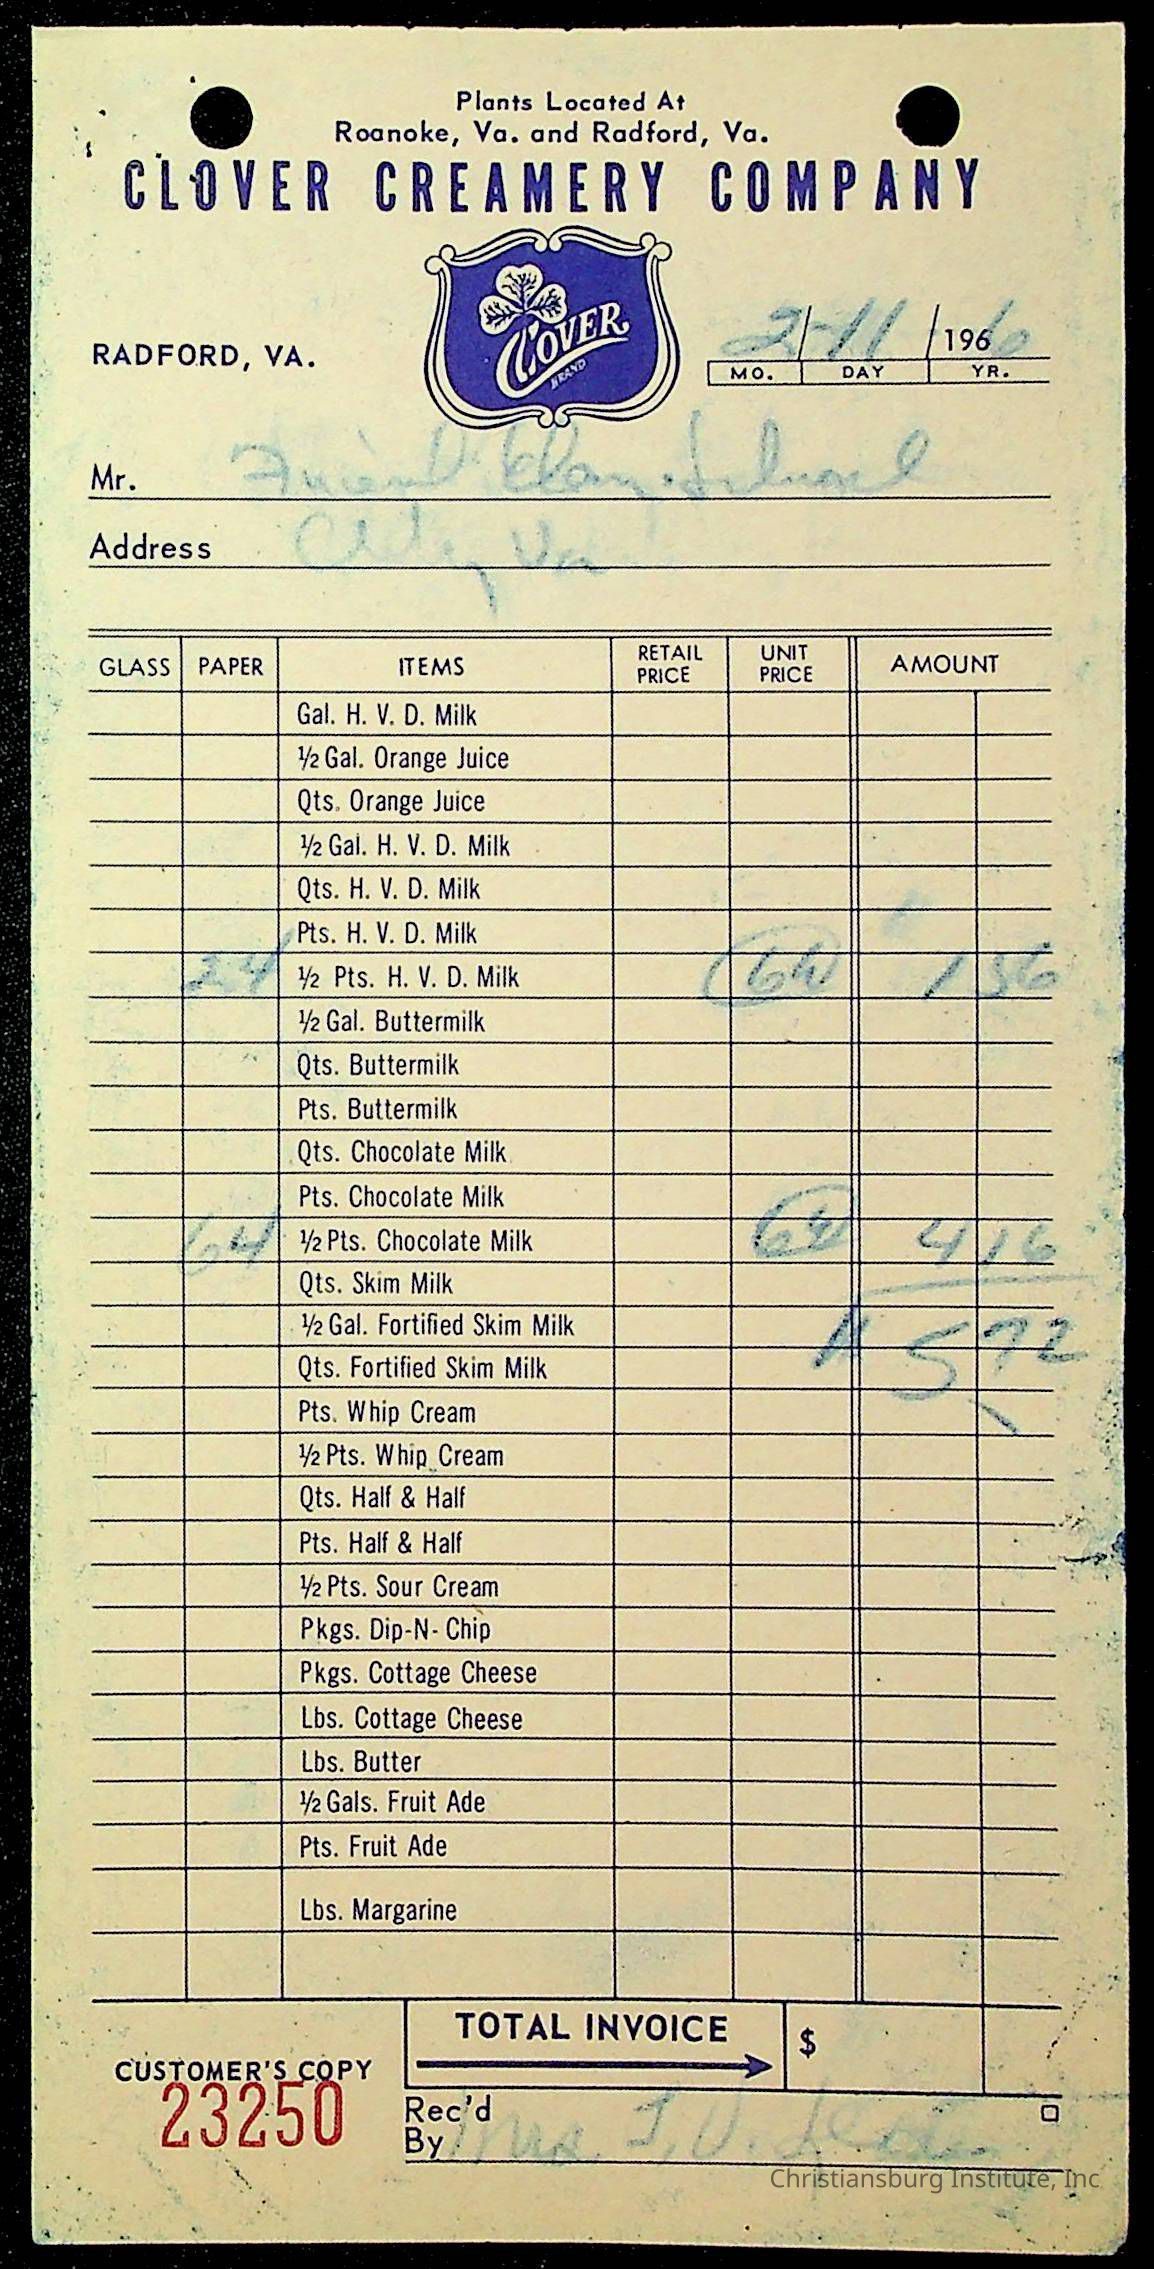 Plants Located At
Roanoke, Va. and Radford, Va.
CLOVER CREAMERY COMPANY
CLOVER
BRAND
RADFORD, VA.
2-11 1966
MO. DAY YR.
Mr. Friend School
Address City, Va
GLASS PAPER ITEMS RETAIL PRICE UNIT PRICE AMOUNT
Gal. H. V. D. Milk
½ Gal. Orange Juice
Qts. Orange Juice
½ Gal. H. V. D. Milk
Qts. H. V. D. Milk
Pts. H. V. D. Milk
24 ½ Pts. H. V. D. Milk 1 56
½ Gal. Buttermilk
Qts. Buttermilk
Pts. Buttermilk
Qts. Chocolate Milk
Pts. Chocolate Milk
64 ½ Pts. Chocolate Milk 4 16
Qts. Skim Milk
½ Gal. Fortified Skim Milk 5 72
Qts. Fortified Skim Milk
Pts. Whip Cream
½ Pts. Whip Cream
Qts. Half & Half
Pts. Half & Half
½ Pts. Sour Cream
Pkgs. Dip-N-Chip
Pkgs. Cottage Cheese
Lbs. Cottage Cheese
Lbs. Butter
½ Gals. Fruit Ade
Pts. Fruit Ade
Lbs. Margarine
TOTAL INVOICE $
CUSTOMER'S COPY
23250
Rec'd By Mrs.
Christiansburg Institute, Inc